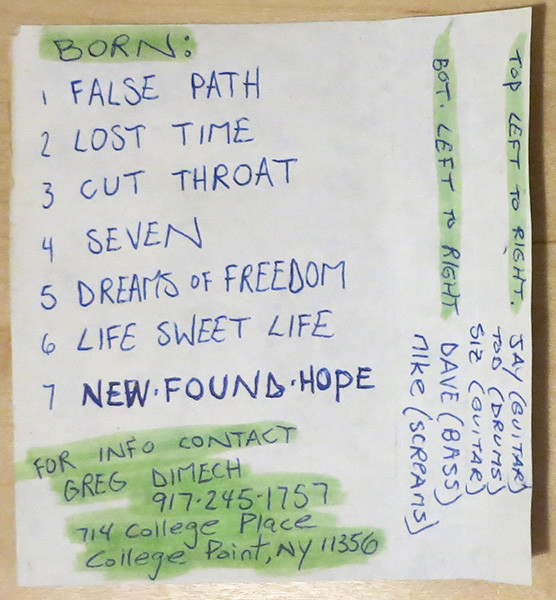 BORN:
1 FALSE PATH
2 LOST TIME
3 CUT THROAT
4 SEVEN
5 DREAMS OF FREEDOM
6 LIFE SWEET LIFE
7 NEW·FOUND·HOPE
FOR INFO CONTACT
GREG DIMECH
917·245·1757
714 College Place
College Point, NY 11356
TOP LEFT TO RIGHT.
JAY (GUITAR)
TOD (DRUMS)
SIZ (GUITAR)
BOT. LEFT TO RIGHT
DAVE (BASS)
MIKE (SCREAMS)